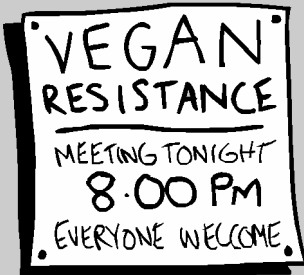 VEGAN
RESISTANCE
MEETING TONIGHT
8.00 PM
EVERYONE WELCOME